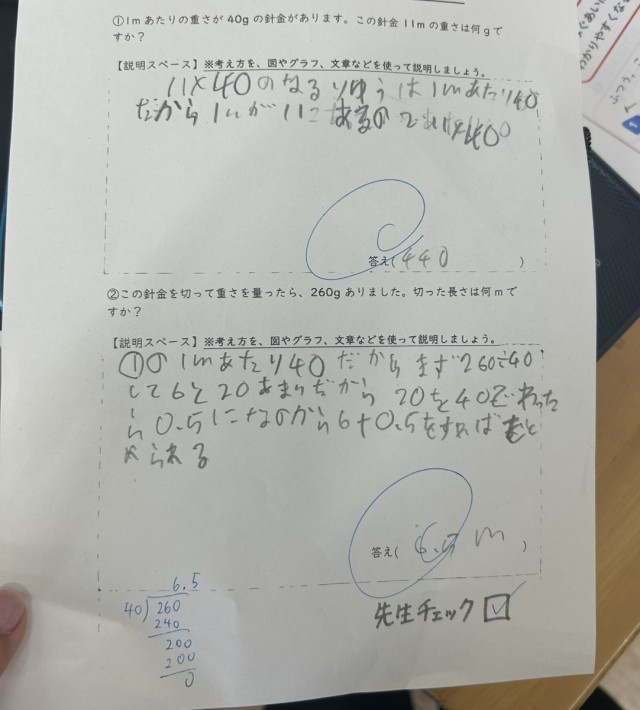 ①1mあたりの重さが40gの針金があります。この針金11mの重さは何gで
すか？
【説明スペース】※考え方を、図やグラフ、文章などを使って説明しましょう。
11×40のなるりゆうは1mあたり40
だから1mが11こあるので11×40
答え(440)
②この針金を切って重さを量ったら、260gありました。切った長さは何mで
すか？
【説明スペース】※考え方を、図やグラフ、文章などを使って説明しましょう。
①の1mあたり40だからまず260÷40
して6と20あまりだから20を40でわった
ら0.5になるから6+0.5をすればもと
められる
答え(6.5m)
6.5
40)260
240
200
200
0
先生チェック